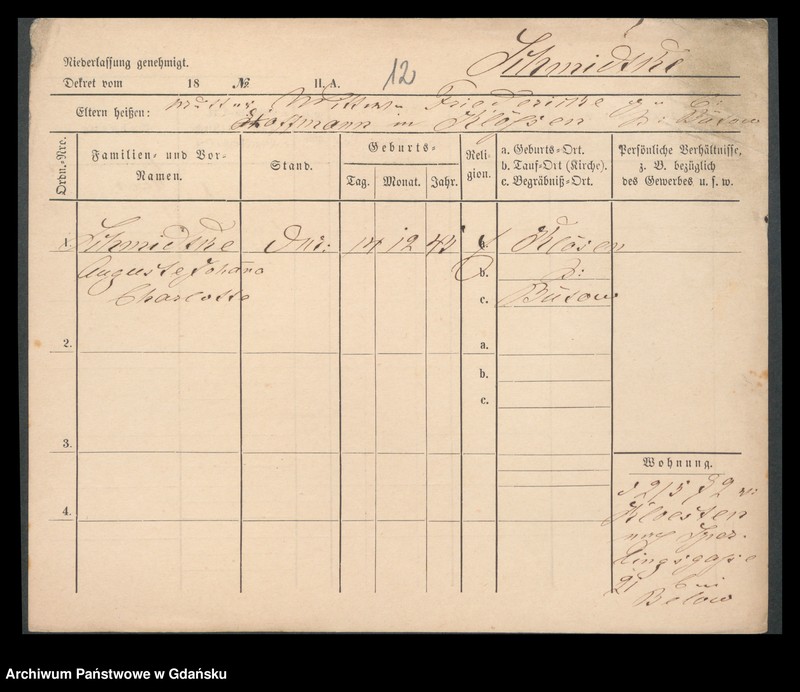 Schmidtke
Niederlassung genehmigt.
Dekret vom 18 № II. A. 12
Mutter Wittwe Friedericke
Eltern heißen: Hoffmann in Klössen b: Bütow
Ordn.-Nro.
Familien- und Vor-
Namen.
Stand.
Geburts-
Tag. Monat. Jahr.
Reli-
gion.
a. Geburts-Ort.
b. Tauf-Ort (Kirche).
c. Begräbniß-Ort.
Persönliche Verhältnisse,
z. B. bezüglich
des Gewerbes u. s. w.
1. Schmidtke 14 12 43 a. Klösen
Auguste Johanna b. b:
Charlotte c. Bütow
2. a.
b.
c.
3.
Wohnung.
4.
d 2/5 72 v:
Kloesten
nach Sper-
lingsgasse
21 bei
Below
Archiwum Państwowe w Gdańsku